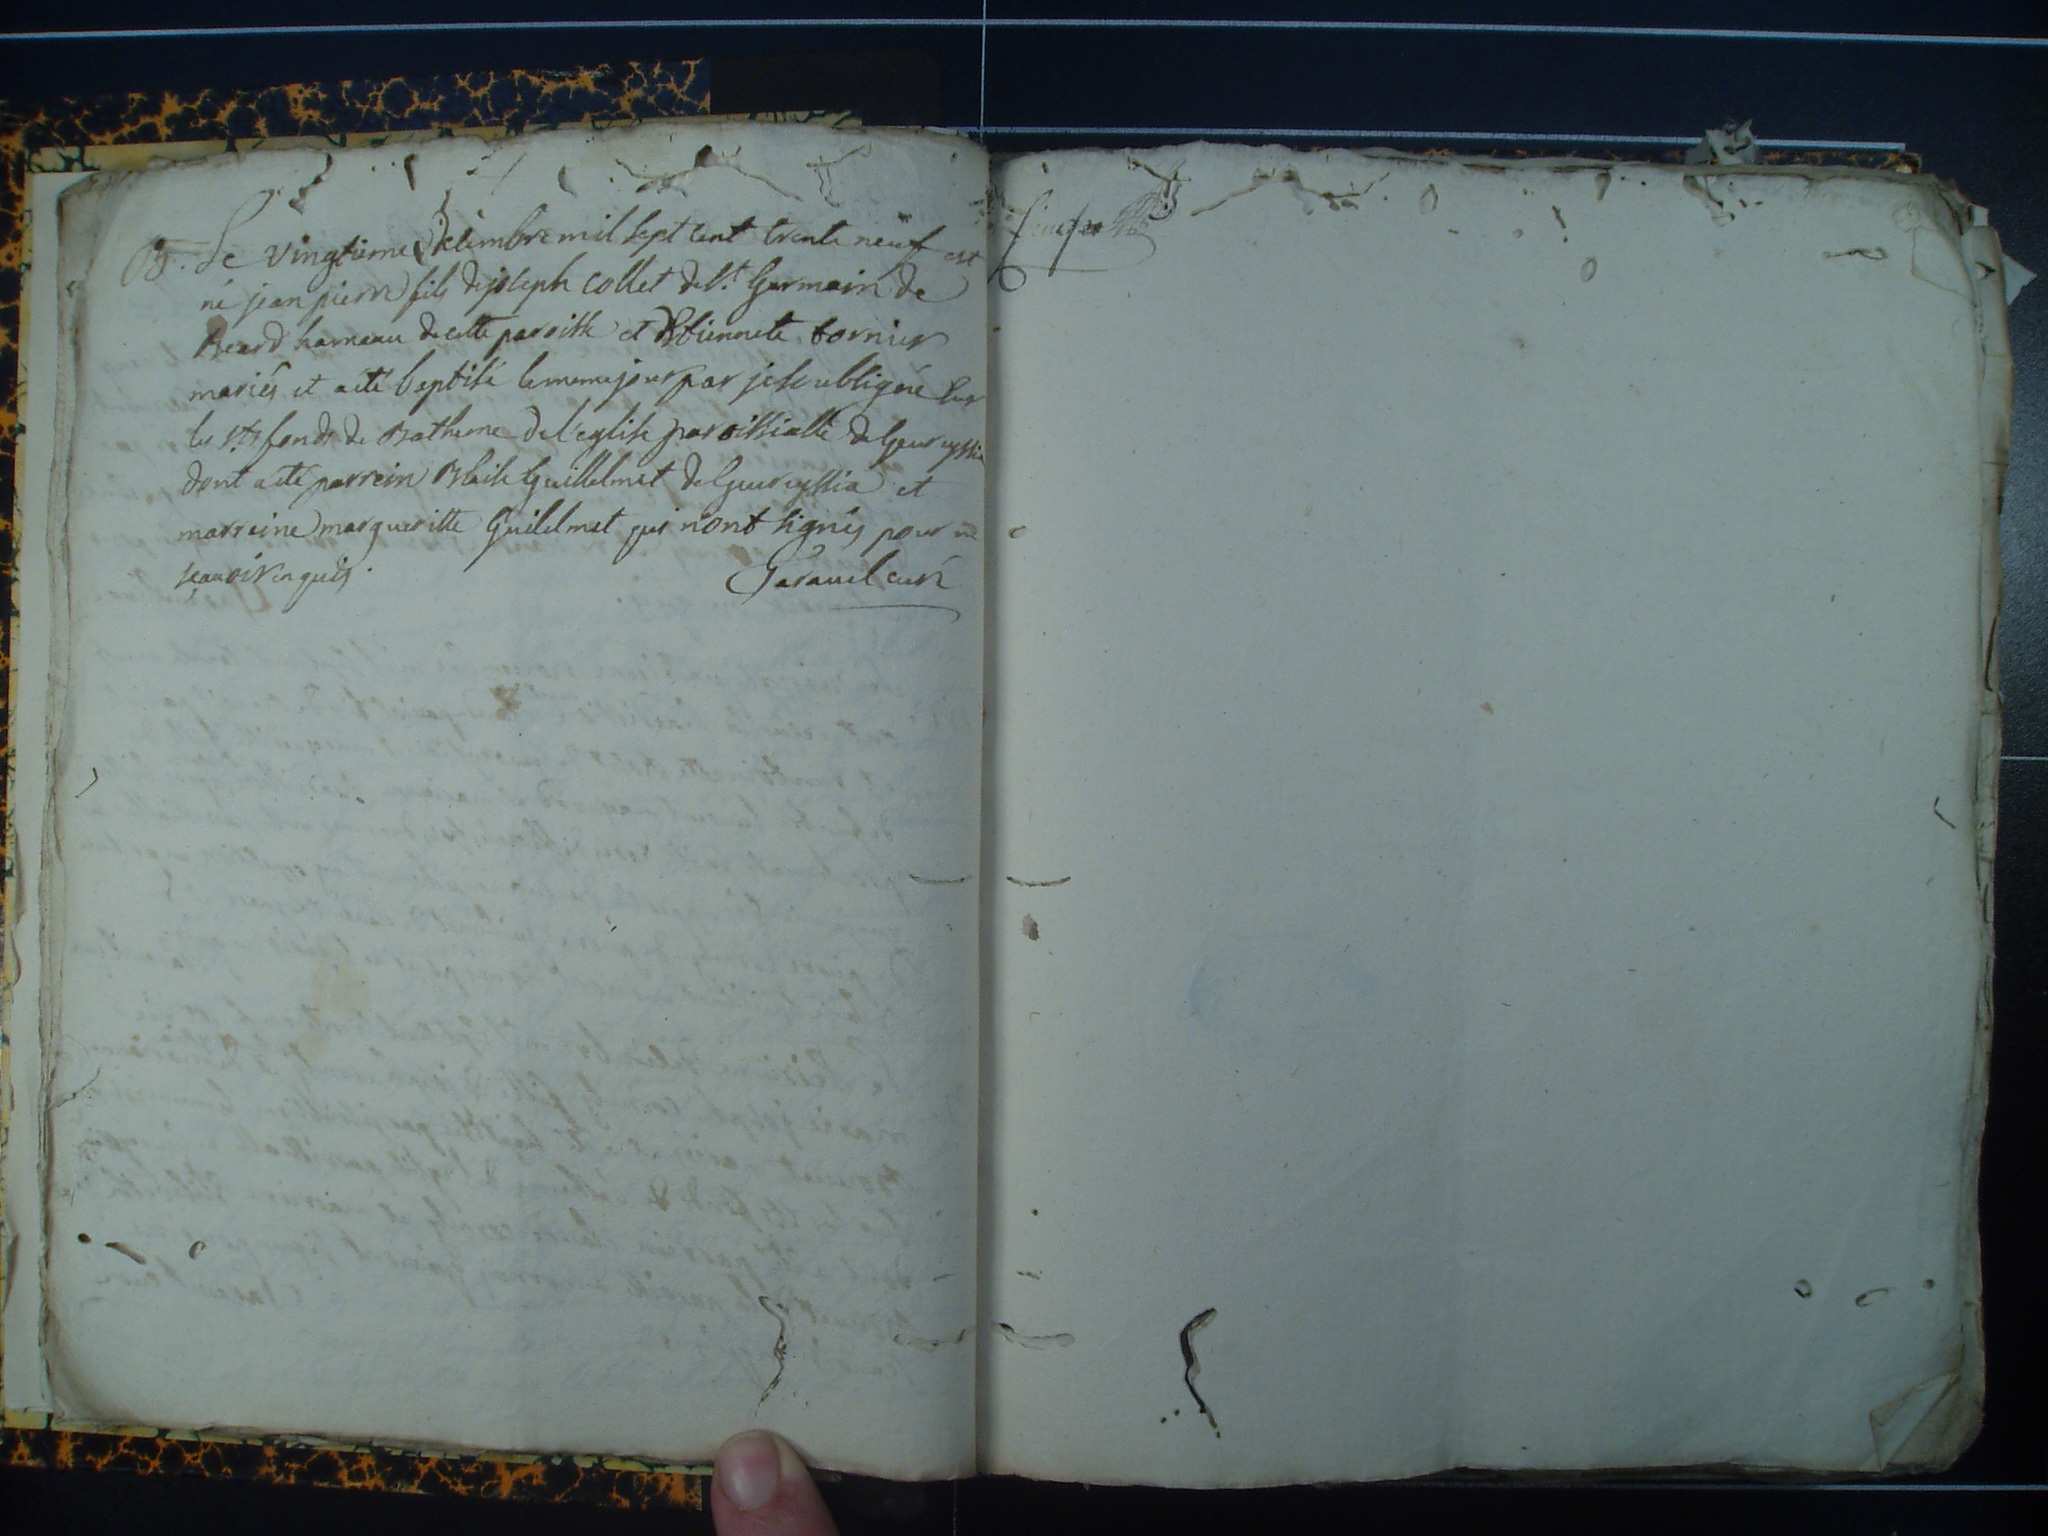 B. Le vingtieme decembre mil sept cent trente neuf est
né jean pierre fils de joseph collet de St. Germain de
Beard hameau de cette paroisse et Estiennete bornier
mariés et a été baptisé le meme jour par je soubsigné sur
les Sts fonds de Batheme de l'eglise paroissialle de Geurcyssia
dont a été parrein Blaise Guillelmet de Geurcyssia et
marreine margueritte Guilelmet qui n'ont signés pour ne
sçauoir enquis. curé